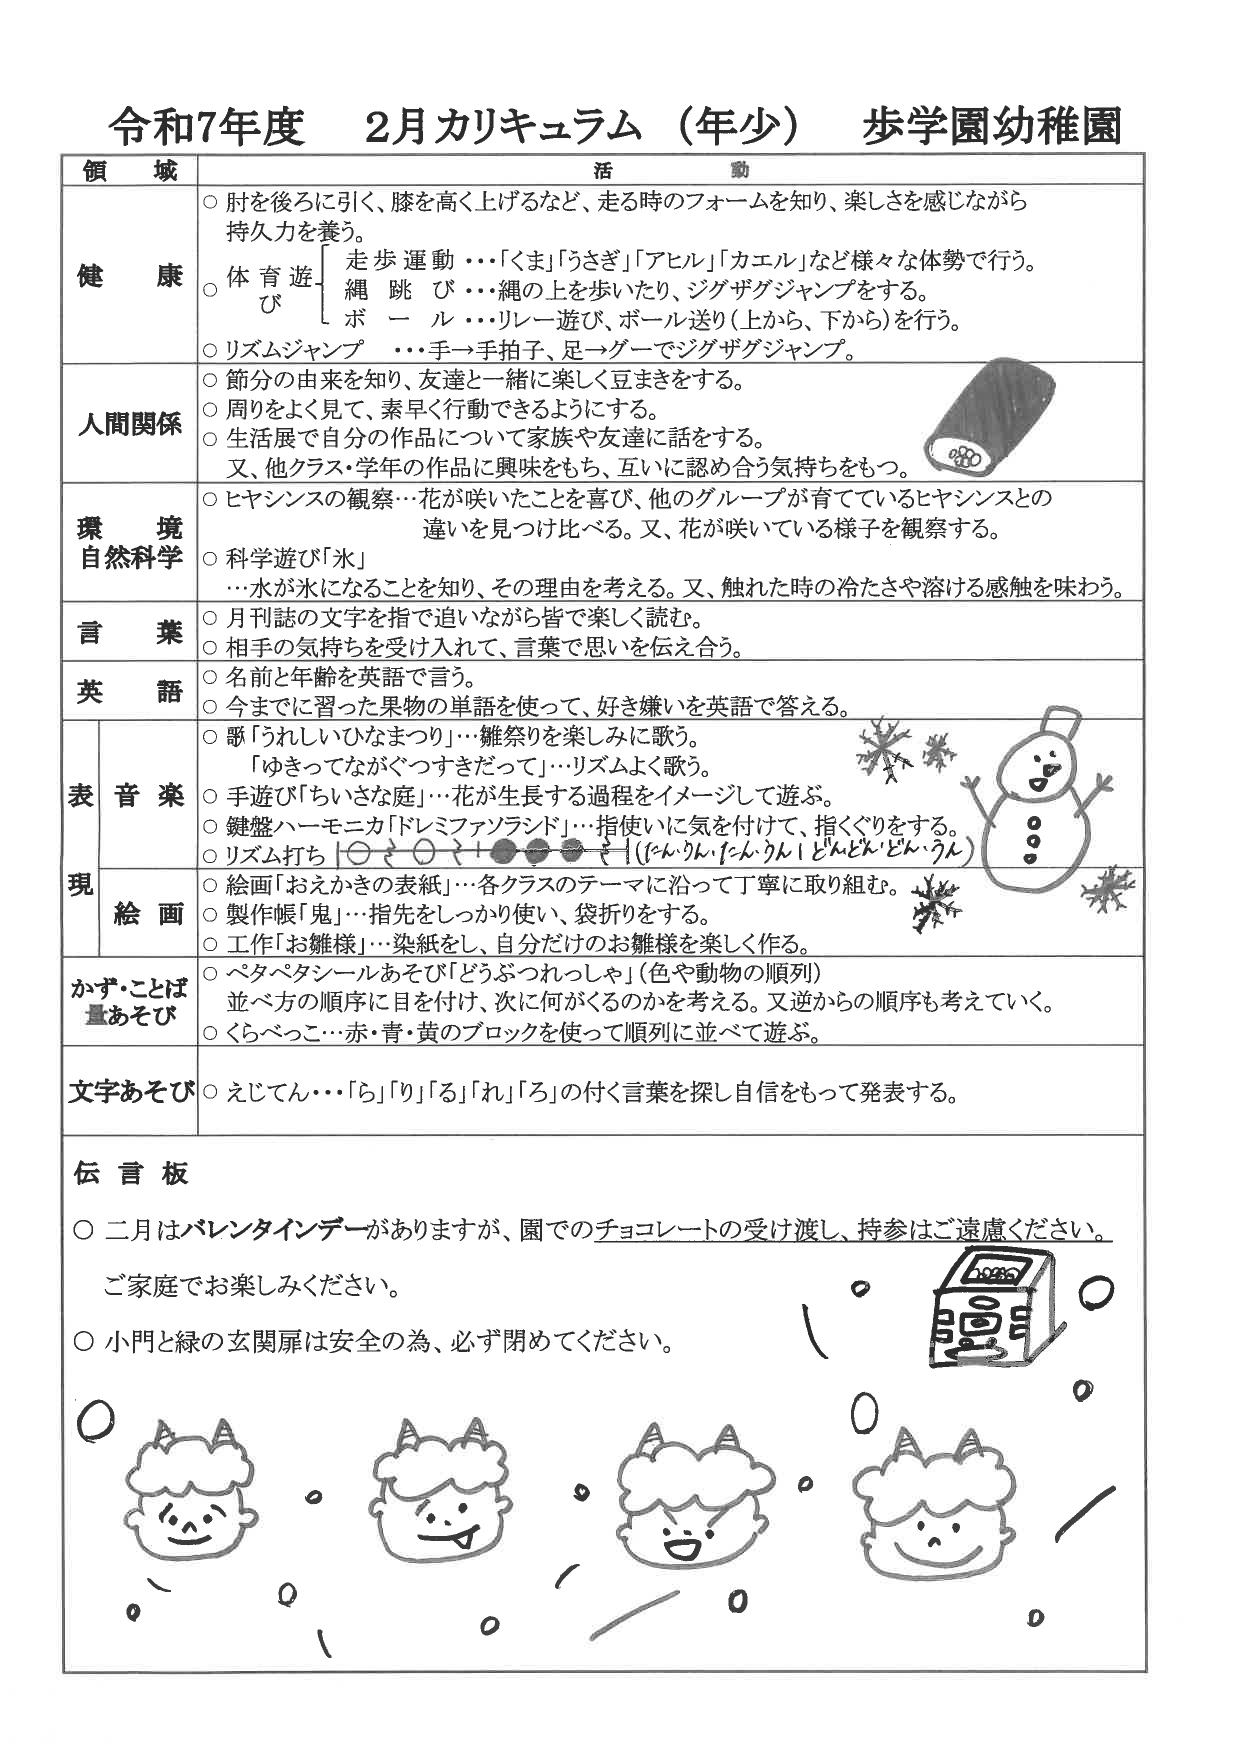 令和7年度　2月カリキュラム（年少）　歩学園幼稚園
領域　活動
健康
○ 肘を後ろに引く、膝を高く上げるなど、走る時のフォームを知り、楽しさを感じながら
持久力を養う。
○ 体育遊び
走歩運動・・・「くま」「うさぎ」「アヒル」「カエル」など様々な体勢で行う。
縄跳び・・・縄の上を歩いたり、ジグザグジャンプをする。
ボール・・・リレー遊び、ボール送り（上から、下から）を行う。
○ リズムジャンプ　・・・手→手拍子、足→グーでジグザグジャンプ。
人間関係
○ 節分の由来を知り、友達と一緒に楽しく豆まきをする。
○ 周りをよく見て、素早く行動できるようにする。
○ 生活展で自分の作品について家族や友達に話をする。
又、他クラス・学年の作品に興味をもち、互いに認め合う気持ちをもつ。
環境
自然科学
○ ヒヤシンスの観察…花が咲いたことを喜び、他のグループが育てているヒヤシンスとの
違いを見つけ比べる。又、花が咲いている様子を観察する。
○ 科学遊び「氷」
…水が氷になることを知り、その理由を考える。又、触れた時の冷たさや溶ける感触を味わう。
言葉
○ 月刊誌の文字を指で追いながら皆で楽しく読む。
○ 相手の気持ちを受け入れて、言葉で思いを伝え合う。
英語
○ 名前と年齢を英語で言う。
○ 今までに習った果物の単語を使って、好き嫌いを英語で答える。
表現
音楽
○ 歌「うれしいひなまつり」…雛祭りを楽しみに歌う。
「ゆきってながぐつすきだって」…リズムよく歌う。
○ 手遊び「ちいさな庭」…花が生長する過程をイメージして遊ぶ。
○ 鍵盤ハーモニカ「ドレミファソラシド」…指使いに気を付けて、指くぐりをする。
○ リズム打ち（たん・うん・たん・うん｜どんどん・どん・うん）
絵画
○ 絵画「おえかきの表紙」…各クラスのテーマに沿って丁寧に取り組む。
○ 製作帳「鬼」…指先をしっかり使い、袋折りをする。
○ 工作「お雛様」…染紙をし、自分だけのお雛様を楽しく作る。
かず・ことば
量あそび
○ ペタペタシールあそび「どうぶつれっしゃ」（色や動物の順列）
並べ方の順序に目を付け、次に何がくるのかを考える。又逆からの順序も考えていく。
○ くらべっこ…赤・青・黄のブロックを使って順列に並べて遊ぶ。
文字あそび
○ えじてん・・・「ら」「り」「る」「れ」「ろ」の付く言葉を探し自信をもって発表する。
伝言板
○ 二月はバレンタインデーがありますが、園でのチョコレートの受け渡し、持参はご遠慮ください。
ご家庭でお楽しみください。
○ 小門と緑の玄関扉は安全の為、必ず閉めてください。